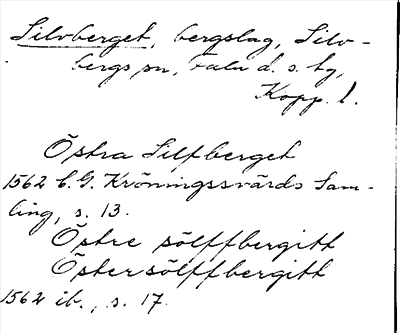 Silvberget, bergslag, Silv-
bergs sn, Falu d. s. tg,
Kopp. l.
Östra Silfberget
1562 C. G. Kröningssvärds Sam-
ling, s. 13.
Östre sölffbergitt
Östersölffbergitt
1562 ib., s. 17.